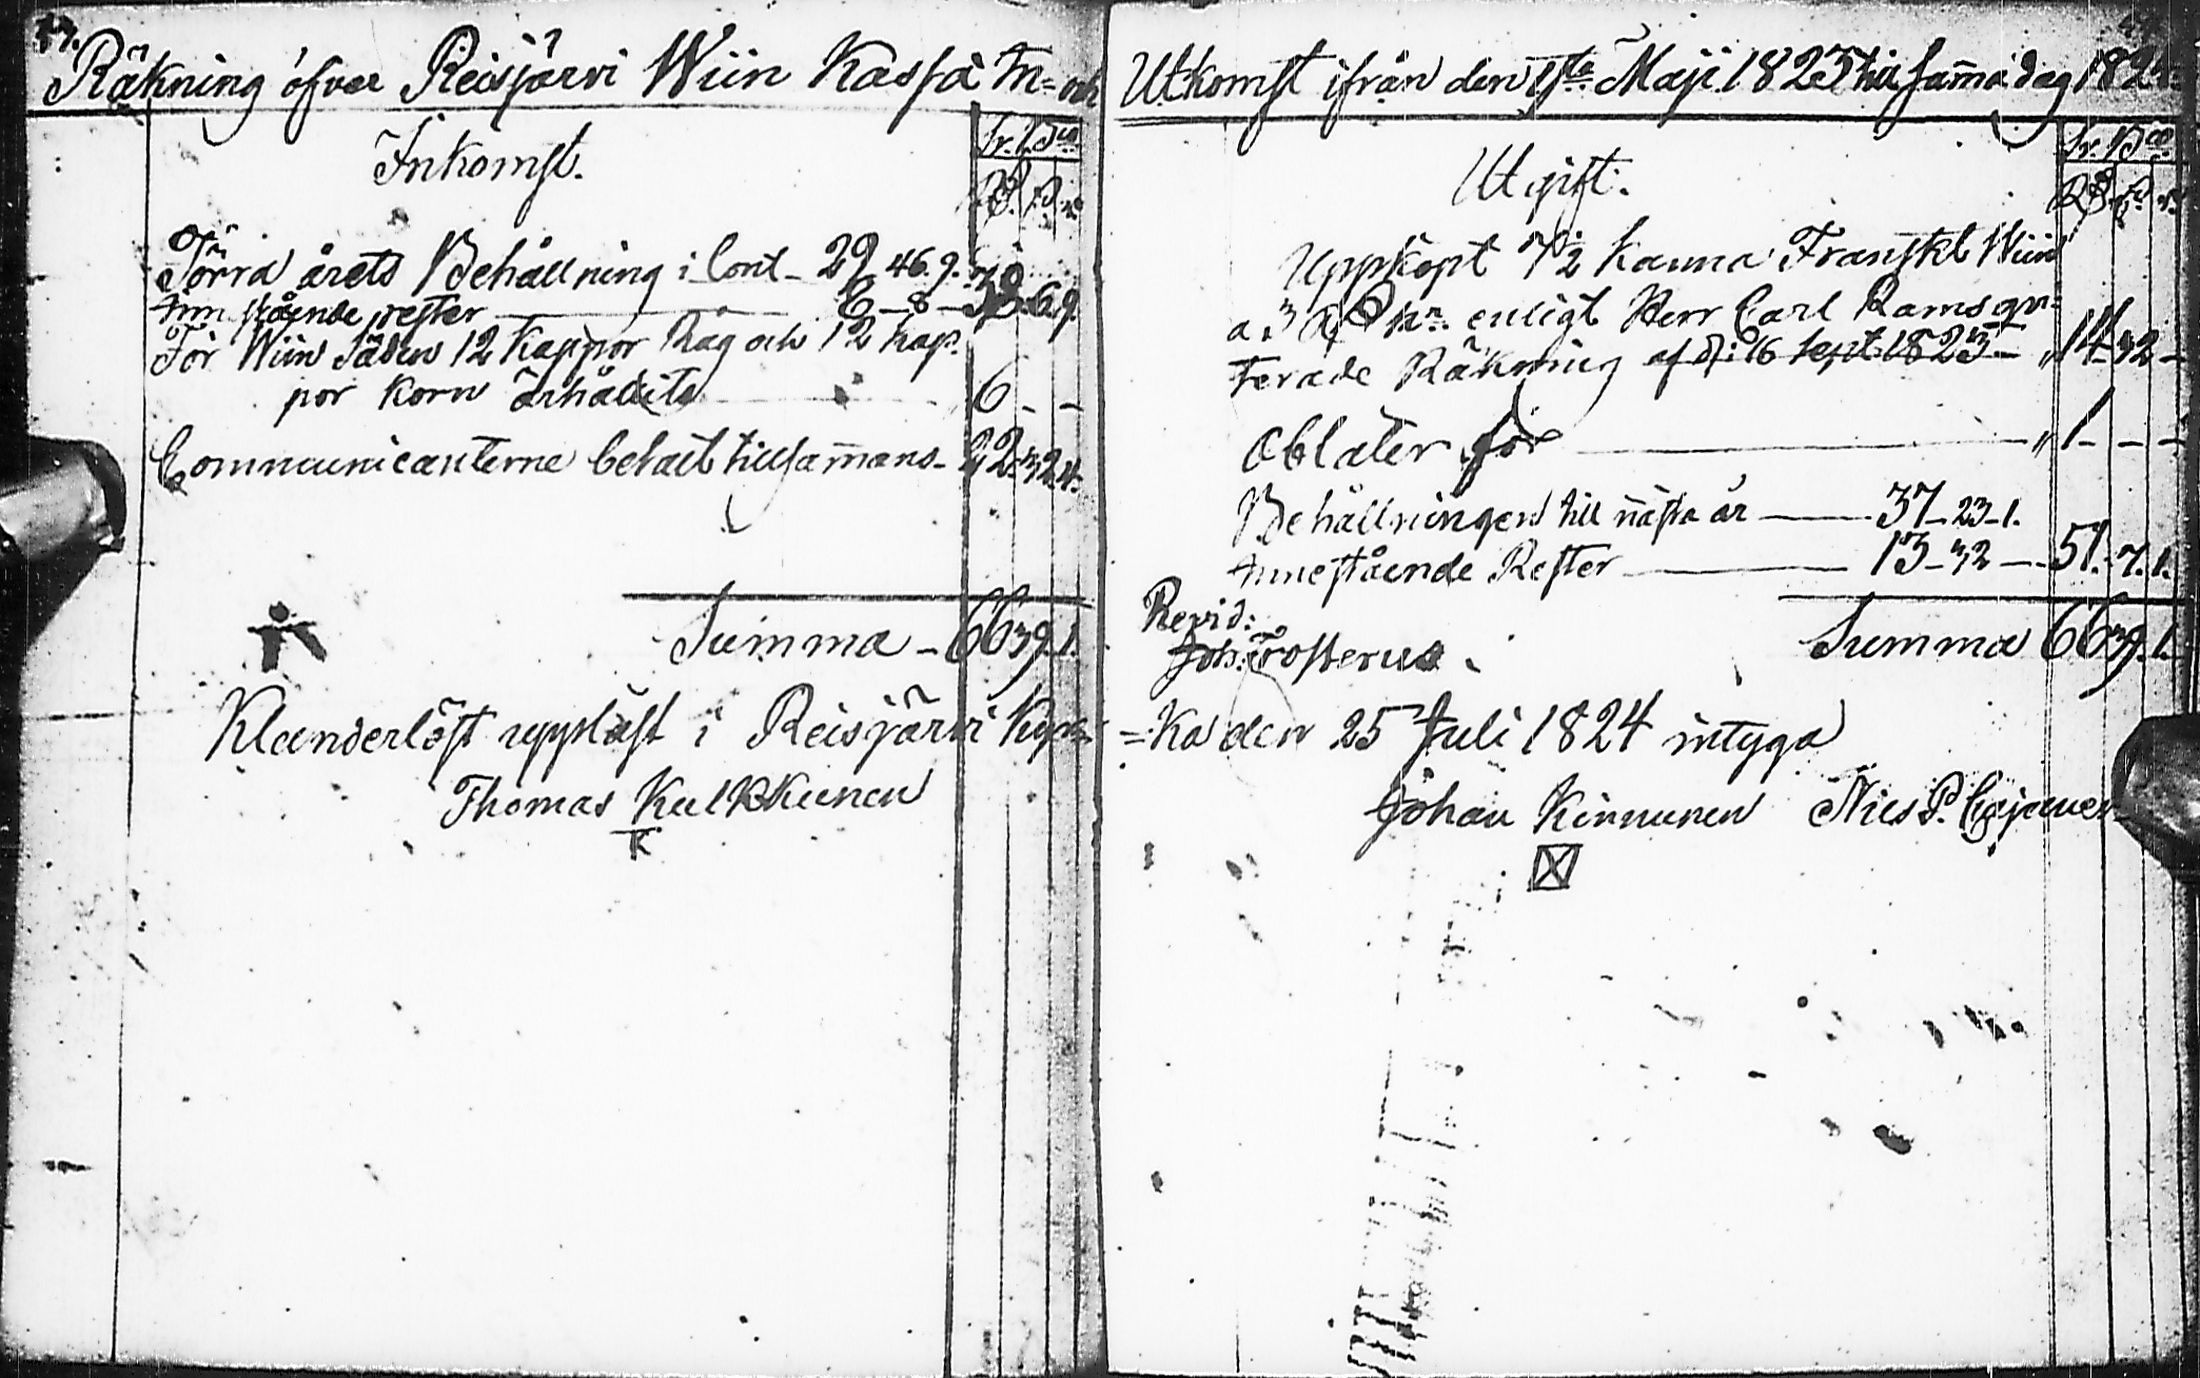 Räkning öfver Reisjärvi Wiin Kassa In= och
Inkomst.
Förra årets Behållning i Cont - 29 46. 9.
Innestående rester - 6 - 8 - 36. 6. 9.
För Wiin Säden 12 Kappor Råg och 12 kap-
por Korn ärhållits 6 - -
Communicanterne betalt tillsamans - 22. 32. 4.
Summa - 66 39. 1.
Klanderlöst uppläst i Reisjärvi Kyr
Thomas Kulkkunen
K
Utkomst ifrån den 1sta Maji 1823 till samma dag 1824
Utgift.
Uppköpt 7½ kanna Franskt Wiin
enligt Herr Carl Rams qvi=
terade Räkning af d: 16 Sept 1823 - 14 - 32 -
Oblater för 1 - - -
Behållningen till nästa år - 37 - 23 - 1.
Innestående Rester - 13 - 32 - 51. 7. 1.
Revid:
Joh: Frosterus.
Summa 66 39. 1.
=ka den 25 Juli 1824 intyga
Johan Kinnunen Nils P.